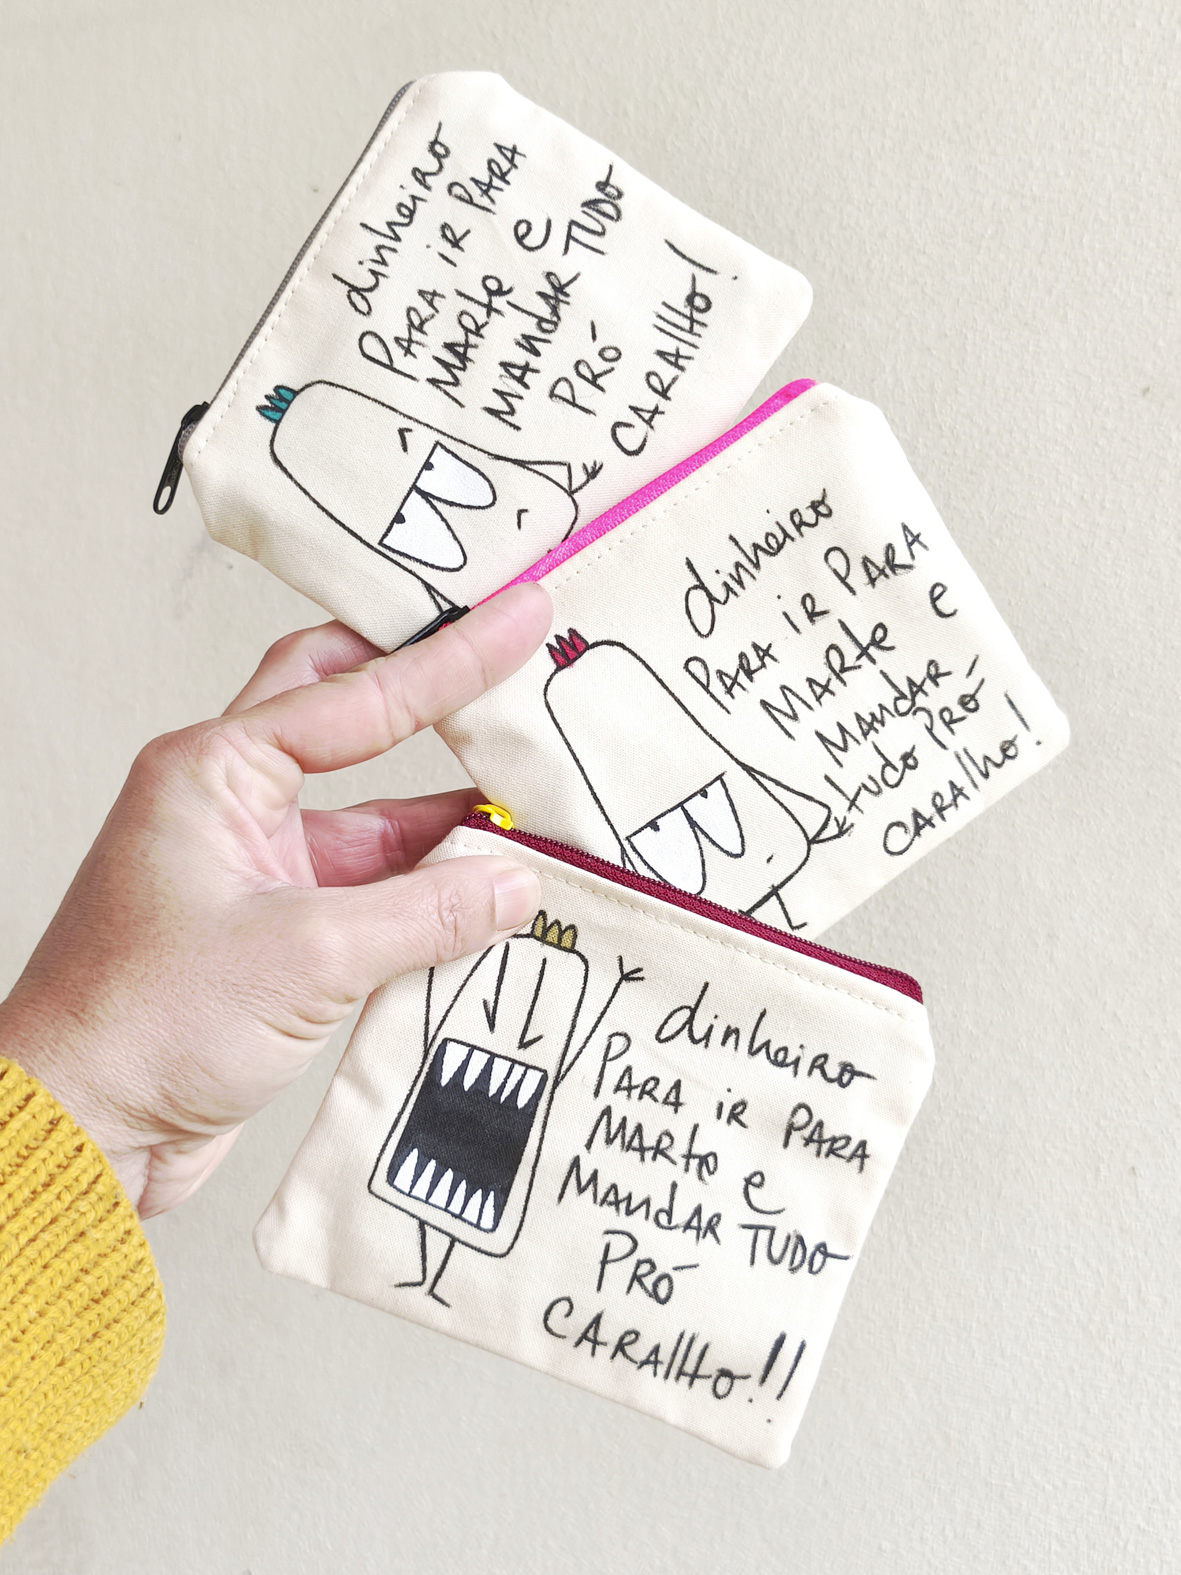 dinheiro
PARA iR PARA
MARte e
MANdAR TUDO
PRÓ
CARAlHo!
dinheiro
PARA iR PARA
MARte e
MANdAR
tudo PRÓ
CARAlho!
dinheiro
PARA iR PARA
MARte e
MANdAR TUDO
PRÓ
CARAlHo!!